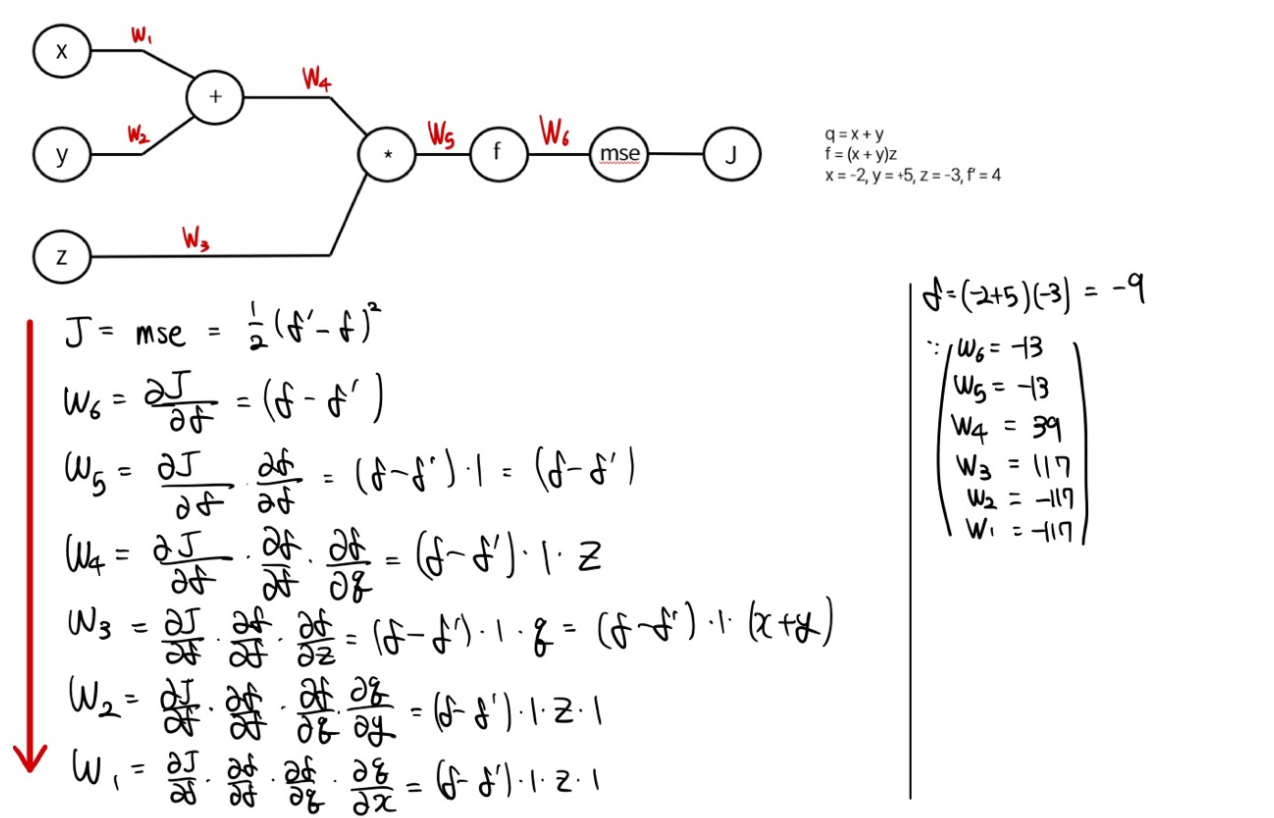 x
W₁
+
W₄
y
W₂
*
W₅
f
W₆
mse
J
z
W₃
q = x + y
f = (x + y)z
x = -2, y = +5, z = -3, f' = 4
J = mse = 1/2 (f' - f)²
W₆ = ∂J/∂f = (f - f')
W₅ = ∂J/∂f · ∂f/∂f = (f - f') · 1 = (f - f')
W₄ = ∂J/∂f · ∂f/∂f · ∂f/∂q = (f - f') · 1 · z
W₃ = ∂J/∂f · ∂f/∂f · ∂f/∂z = (f - f') · 1 · q = (f - f') · 1 · (x+y)
W₂ = ∂J/∂f · ∂f/∂f · ∂f/∂q · ∂q/∂y = (f - f') · 1 · z · 1
W₁ = ∂J/∂f · ∂f/∂f · ∂f/∂q · ∂q/∂x = (f - f') · 1 · z · 1
f = (-2+5)(-3) = -9
∵ W₆ = -13
W₅ = -13
W₄ = 39
W₃ = 117
W₂ = -117
W₁ = -117